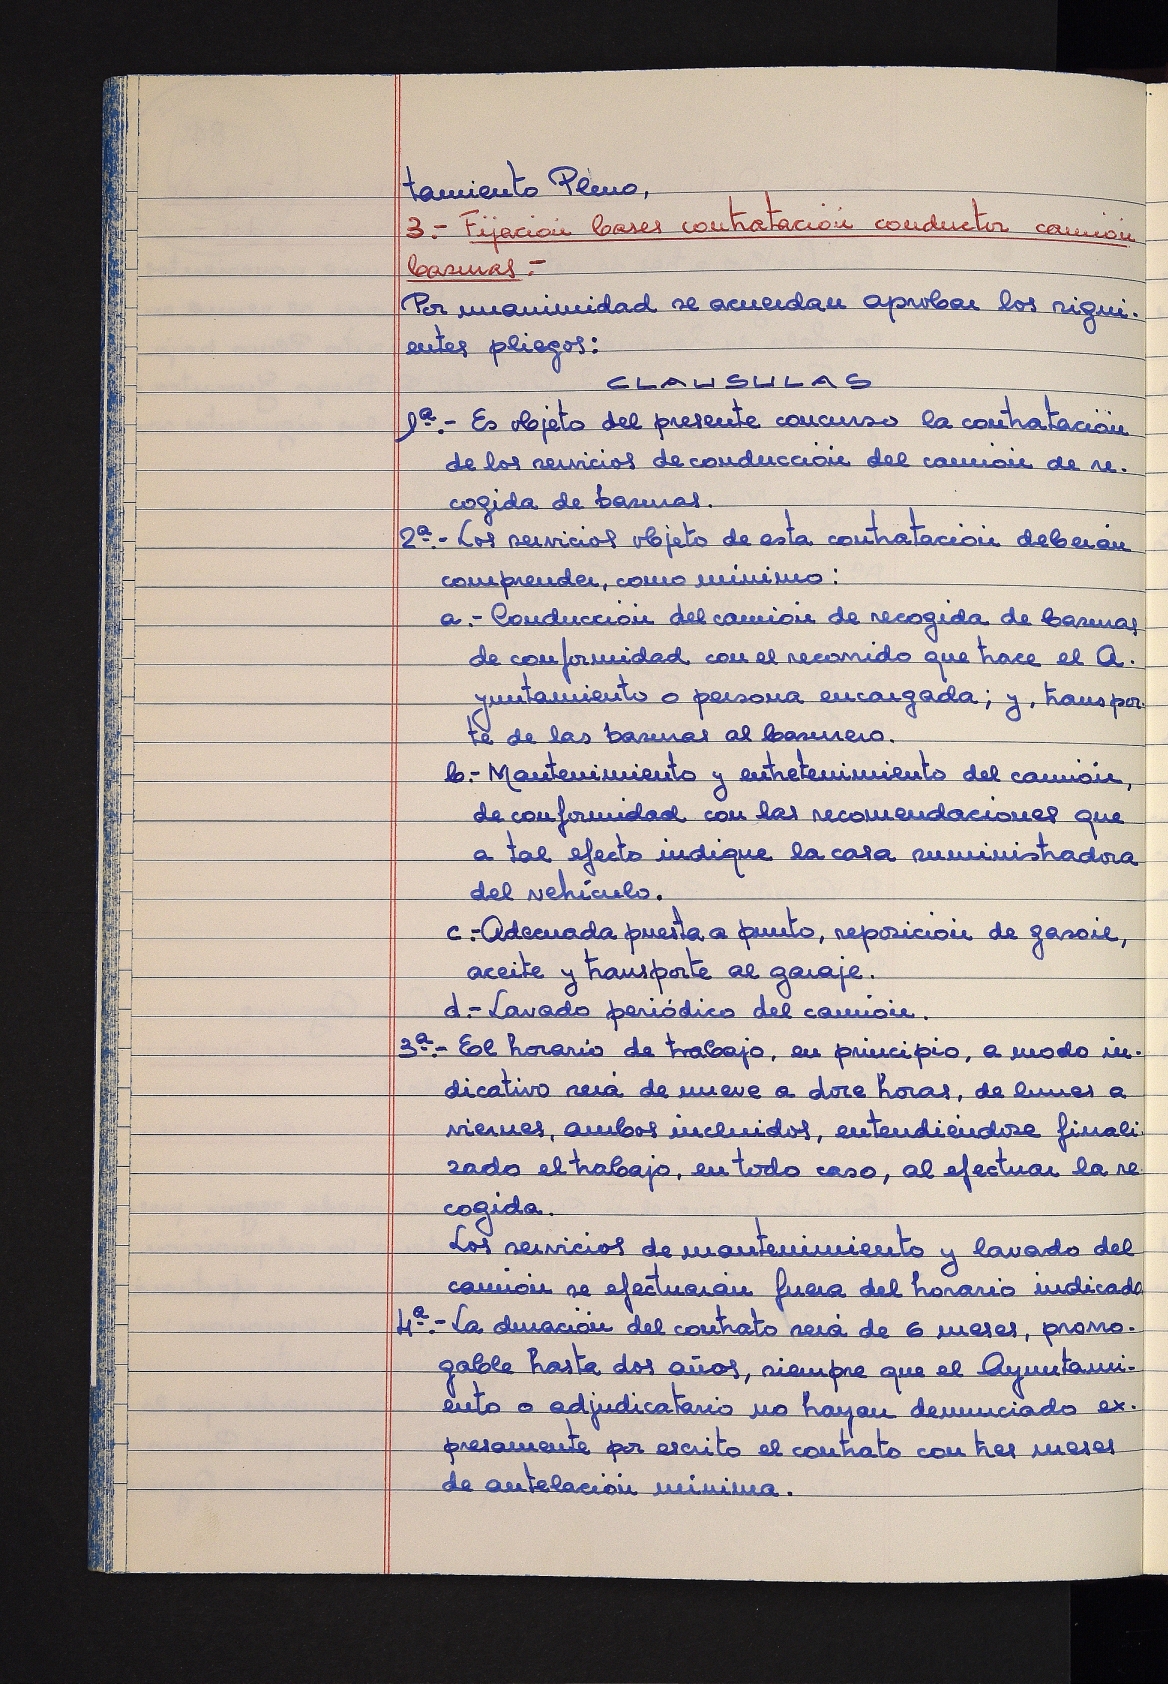 tamiento Pleno,
3.- Fijación bases contratación conductor camión
basuras.-
Por unanimidad se acuerdan aprobar los sigui-
entes pliegos:
CLAUSULAS
1ª.- Es objeto del presente concurso la contratación
de los servicios de conducción del camión de re-
cogida de basuras.
2ª.- Los servicios objeto de esta contratación deberán
comprender, como mínimo:
a.- Conducción del camión de recogida de basuras
de conformidad con el recorrido que trace el A-
yuntamiento o persona encargada; y, transpor-
te de las basuras al basurero.
b.- Mantenimiento y entretenimiento del camión,
de conformidad con las recomendaciones que
a tal efecto indique la casa suministradora
del vehículo.
c.- Adecuada puesta a punto, reposición de gasoil,
aceite y transporte al garaje.
d.- Lavado periódico del camión.
3ª.- El horario de trabajo, en principio, a modo in-
dicativo será de nueve a doce horas, de lunes a
viernes, ambos incluidos, entendiéndose finali-
zado el trabajo, en todo caso, al efectuar la re-
cogida.
Los servicios de mantenimiento y lavado del
camión se efectuarán fuera del horario indicado
4ª.- La duración del contrato será de 6 meses, prorro-
gable hasta dos años, siempre que el Ayuntami-
ento o adjudicatario no hayan denunciado ex-
presamente por escrito el contrato con tres meses
de antelación mínima.